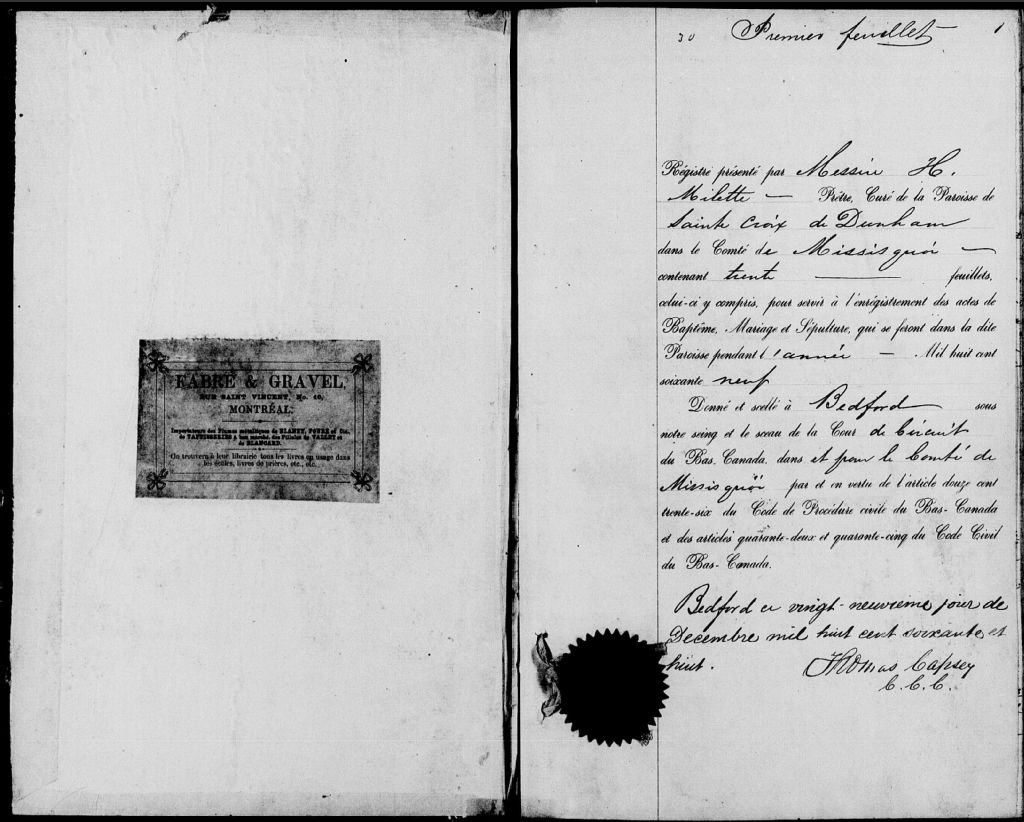 FABRE & GRAVEL,
RUE SAINT VINCENT, No. 10,
MONTRÉAL.
Importateurs des Plumes métalliques de BLANZY, POURE et Cie,
de TAPISSERIES à bon marché, des Pilules de VALLET et
de BLANCARD.
On trouvera à leur librairie tous les livres en usage dans
les écoles, livres de prières, etc., etc.
30 Premier feuillet 1
Régistre présenté par Messire H.
Milette — Prêtre, Curé de la Paroisse de
Sainte Croix de Dunham
dans le Comté de Missisquoi —
contenant trente — feuillets,
celui-ci y compris, pour servir à l'enrégistrement des actes de
Baptême, Mariage et Sépulture, qui se feront dans la dite
Paroisse pendant l'année — Mil huit cent
soixante neuf
Donné et scellé à Bedford sous
notre seing et le sceau de la Cour de Circuit
du Bas-Canada, dans et pour le Comté de
Missisquoi par et en vertu de l'article douze cent
trente-six du Code de Procédure civile du Bas-Canada
et des articles quarante-deux et quarante-cinq du Code Civil
du Bas-Canada.
Bedford ce vingt-neuvieme jour de
Decembre mil huit cent soixante et
huit. Thomas Capsey
C.C.C.